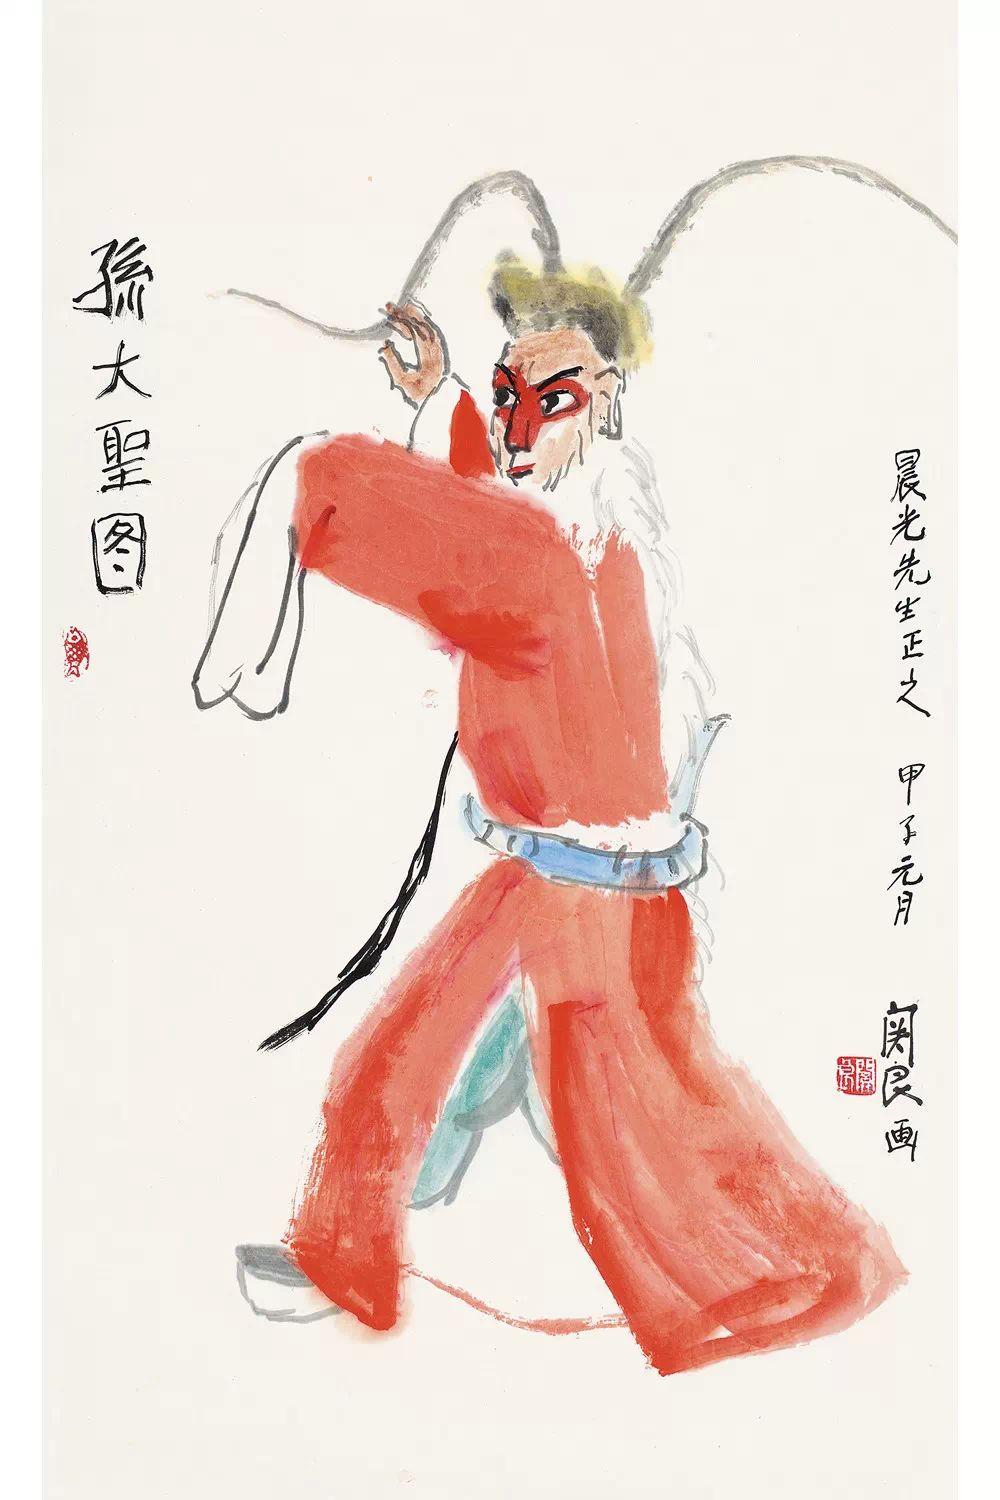 晨光先生正之 甲子元月 関良画
孫大聖图